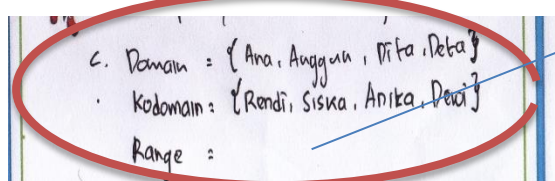 c. Domain = {Ana, Anggun, Dita, Deta}
Kodomain = {Rendi, Siska, Anika, Dewi}
Range =